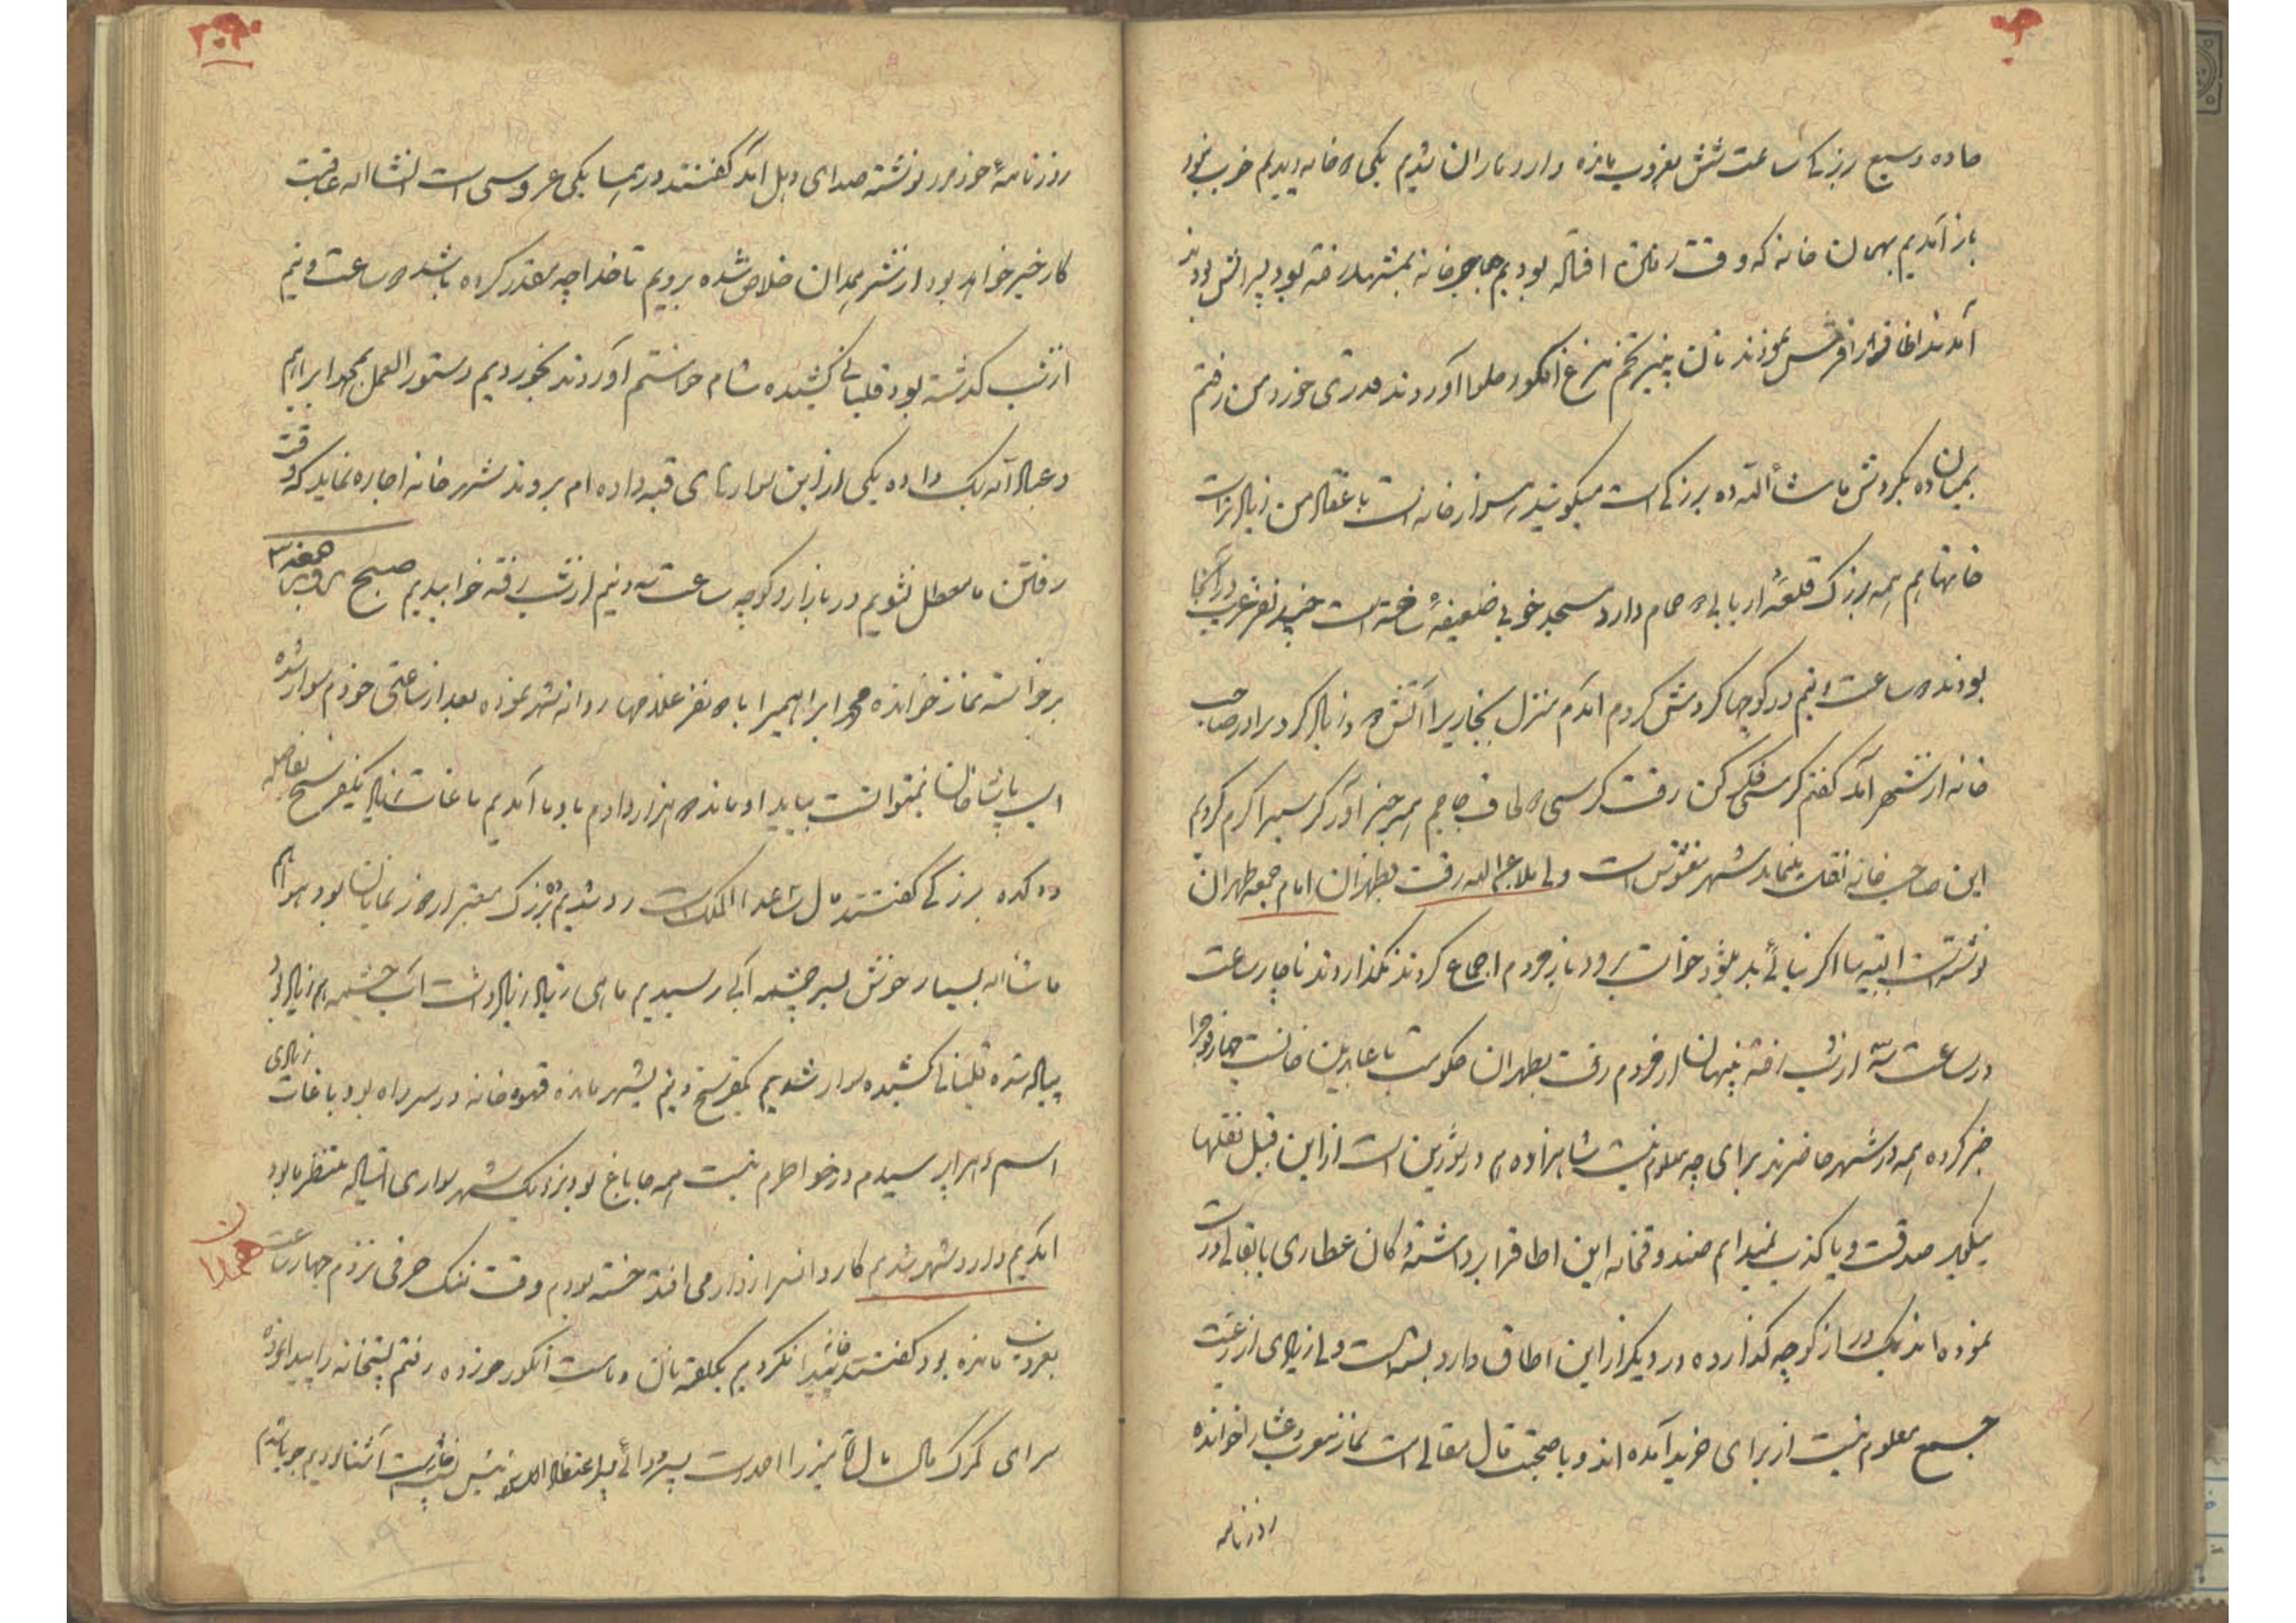 جاده وسیع بزرگی ساعت شش بغروب مانده وارد باران شدیم یکی ۲ خانه دیدیم خوب نبود
باز آمدیم بهمان خانه که وقت رفتن افتاده بودیم صاحب خانه بمشهد رفته بود پسرانش بودند
آمدند اطاق را فرش نمودند نان پنیر تخم مرغ انگور حلوا آوردند قدری خورده من رفتم
بمیان ده بگردش ماشاءالله ده بزرگی است میگویند هزار خانه است باعتقاد من زیادتر است
خانها هم همه بزرگ قلعهٔ اربابی ۲ حمام دارد مسجد خوبی ضعیفهٔ ساخته است چند نفر عرب در آنجا
بودند ۲ ساعت و نیم در کوچها گردش کردم آمدم منزل بخاریرا آتش زیاد کرد برادر صاحب
خانه از شهر آمد گفتم کرسی فکری کن رفت کرسی لحاف جاجیم همه چیز آورد کرسیرا گرم کردیم
این صاحب خانه نقلت مینماید شهر مغشوش است ولی ملا عبدالله رفت بطهران امام جمعه طهران
نوشته است البته بیا اگر نیائی بد میشود خواست برود باز مردم اجماع کردند نگذاردند ناچار ساعت
در ساعت سه از شب رفته پنهان از مردم رفت بطهران حکومت با عابدین خان است چهار فوج را
خبر کرده همه در شهر حاضرند برای چه معلوم نیست شاهزاده هم در شورین است از این قبیل نقلها
میکند صدقست و یا کذب نمیدانم صندوقخانه این اطاق را برداشته دکان عطاری یا بقالی درست
نموده اند یک در از کوچه گذارده در دیگر از این اطاق دارد بسته است ولی زیادی از رعیت
جمع معلوم نیست از برای خرید آمده اند و یا صحبت قال مقالی است نماز مغرب و عشا را خوانده
روزنامه
۲۰۹
روزنامهٔ خودم را نوشته صدای دهل آمد گفتند در همسایگی عروسی است انشاءاله عاقبت
کار خیر خواهد بود از شر همدان خلاص شده برویم تا خدا چه مقدر کرده باشد ۲ ساعت و نیم
از شب گذشته بود قلیانی کشیده شام خواستم آوردند بخوردیم دستورالعمل بمحمد ابراهیم
و عبدالله بک داده یکی از این سوارهای قبه داده ام بروند شهر خانه اجاره نماید که وقت
رفتن ما معطل نشویم در بازار و کوچه ساعت سه و نیم از شب رفته خوابیدیم صبح روز جمعه ۳
برخاسته نماز خوانده محمد ابراهیم را با ۲ نفر غلامها روانه شهر نموده بعد از ساعتی خودم سوار شده
اسب پاشاخان نمیتوانست بیاید او مانده ۲ هزار دادم باو ما آمدیم باغات زیاد یکفرسخ بفاصله
ده کده بزرگی گفتند مال ساعدالملک است رد شدیم ده بزرگ معتبر از دور نمایان بود هوا هم
ماشاءاله بسیار خوش بسر چشمه آبی رسیدیم ماهی زیاد زیاد داشت آب چشمه هم زیاد بود
پیاده شده قلیانی کشیده سوار شدیم یکفرسخ و نیم بشهر مانده قهوه خانه در سر راه بود باغات زیادی
اسم هر را پرسیدم در خواطرم نیست همه جا باغ بود نزدیک شهر سواری ایستاده منتظر ما بود
آمدیم وارد شهر شدیم کاروانسرا زوار می افتد خسته بودم وقت تنگ حرفی نزدم چهار ساعت
همدان
بغروب مانده بود گفتند خانه پیدا نکردیم یکلقمه نان و ماست انگور خورده رفتم پستخانه را پیدا نموده
سرای گمرک مال میرزا احمد است پسر رئیس پستخانه است آشنا بودیم جویا شدم